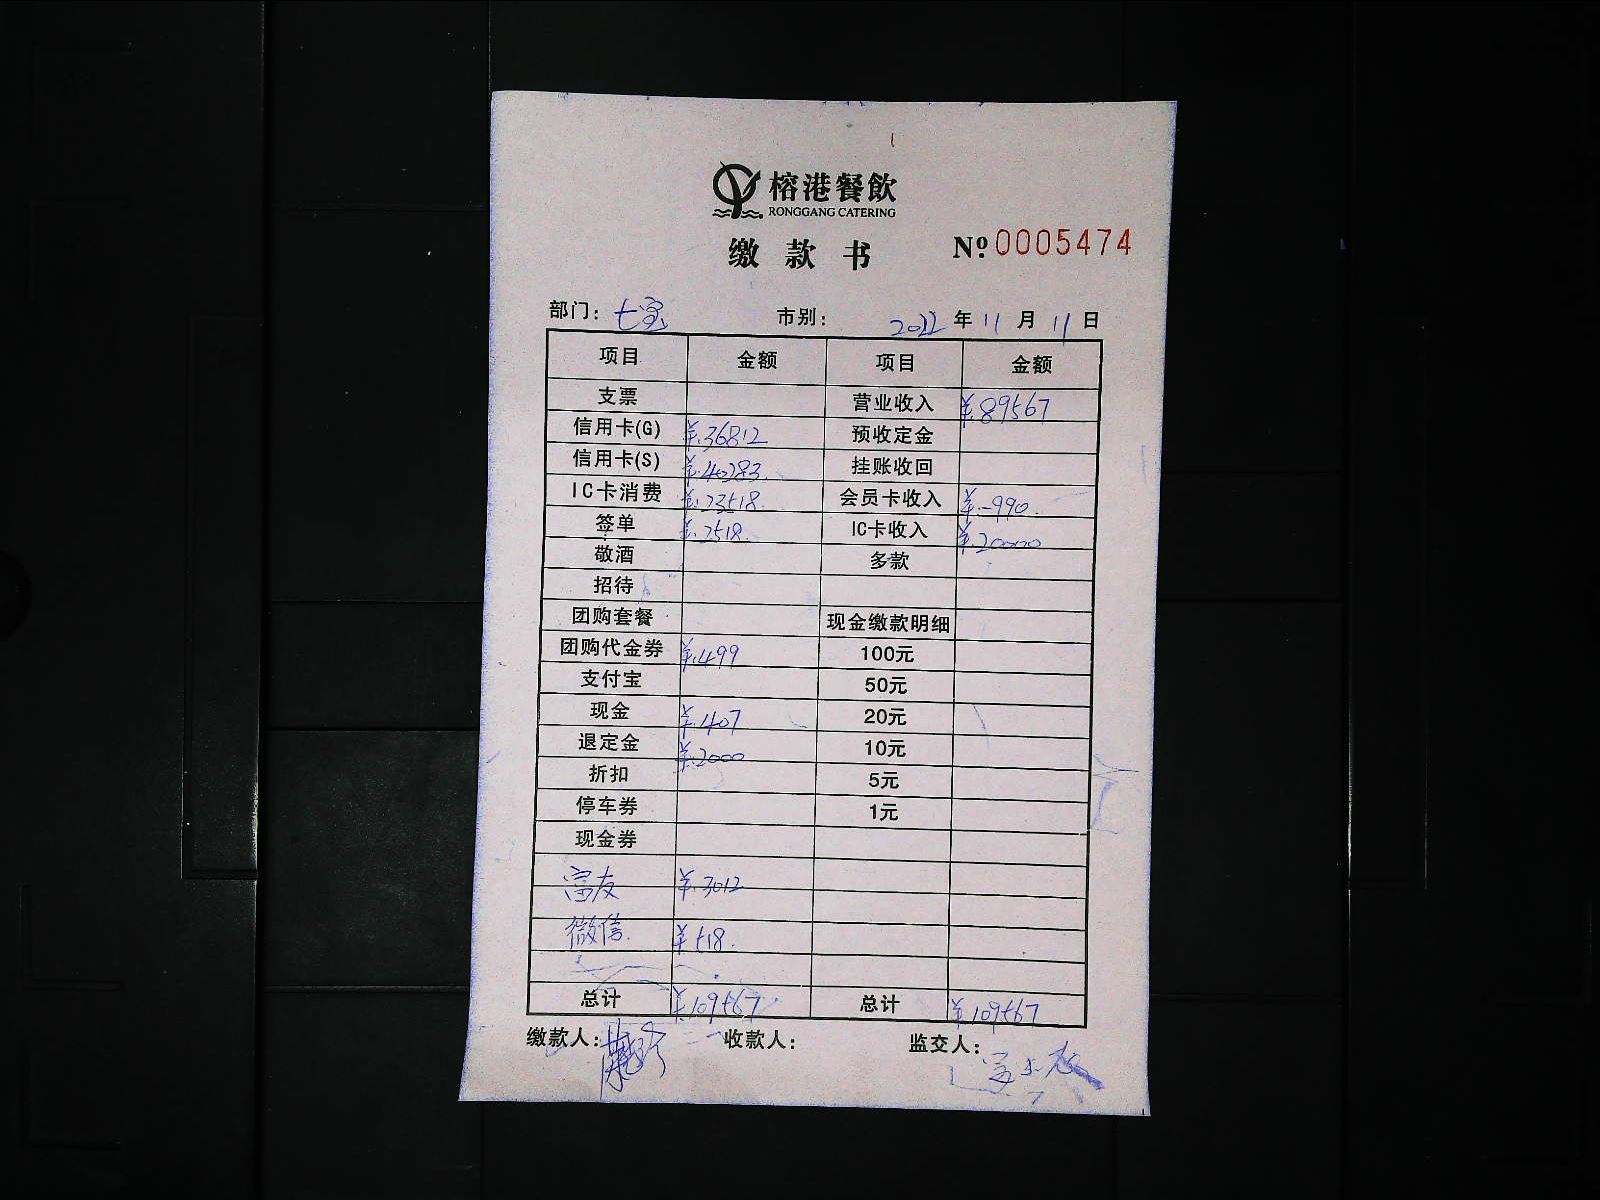 榕港餐飲
RONGGANG CATERING
缴款书 №0005474
部门：七宝 市别： 2022年11月11日
项目 金额 项目 金额
支票 营业收入 ¥.89567
信用卡(G) ¥.36812 预收定金
信用卡(S) ¥.40283. 挂账收回
IC卡消费 ¥.23518. 会员卡收入 ¥.-990.
签单 ¥.2518. IC卡收入 ¥.20000
敬酒 多款
招待
团购套餐 现金缴款明细
团购代金券 ¥.499 100元
支付宝 50元
现金 ¥.407 20元
退定金 ¥.2000 10元
折扣 5元
停车券 1元
现金券
富友 ¥.3012
微信. ¥518.
总计 ¥109567. 总计 ¥109567
缴款人： 收款人： 监交人：